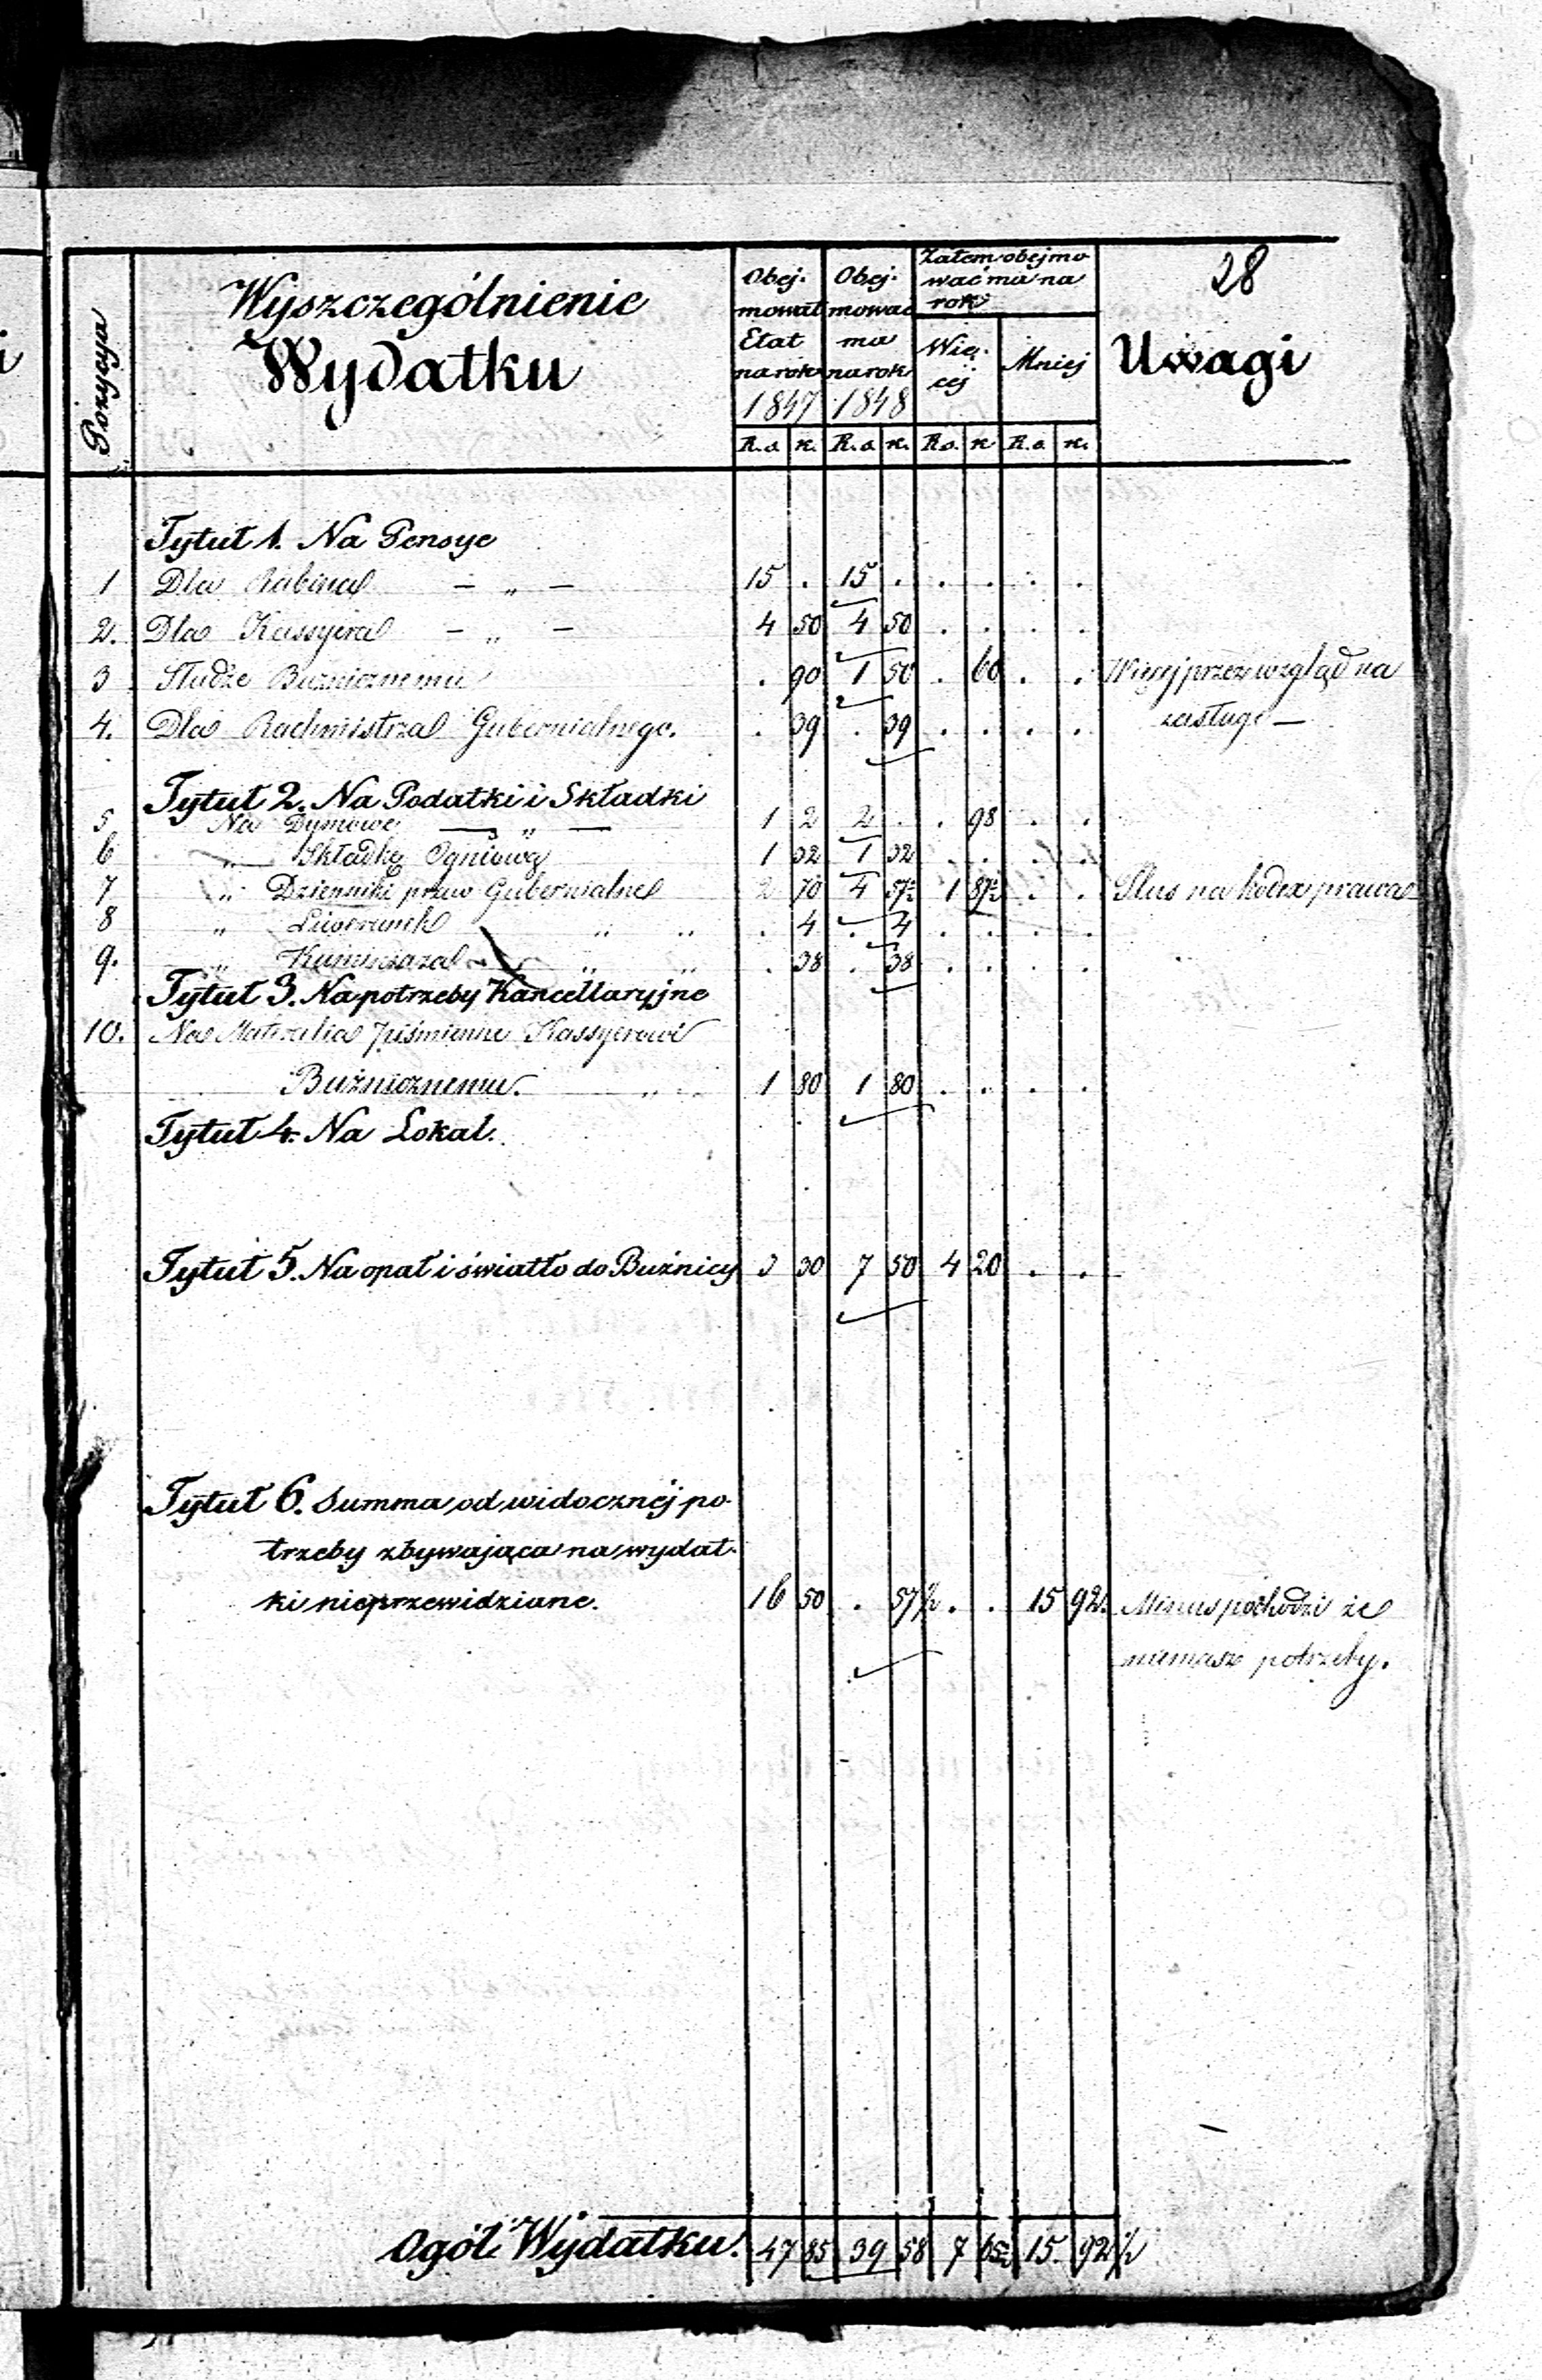 28
Pozycya
Wyszczególnienie
Wydatku
Obej-
mował
Etat
na rok
1847
Obej-
mować
ma
na rok
1848
Zatem obejmo
wać ma na
rok
Wię-
céj
Mniej
Uwagi
R.s. k. R.s. k. R.s. k R.s. k.
Tytuł 1. Na Pensye
1 Dla Rabina — „ — 15 . 15 . . . . .
2. Dla Kassyera — „ — 4 50 4 50 . . . .
3 Słudze Bużnicznemu . 90 1 50 . 60 . . Więcej przez wzgląd na
4. Dla Rachmistrza Gubernialnego. . 39 . 39 . . . . zasługi —
Tytuł 2. Na Podatki i Składki
5 Na Dymowe — „ — 1 2 2 . . 98 . .
6 „ Składkę Ogniową 1 32 1 32 . . . .
7 „ Dzienniki praw Gubernialne 2 70 4 57½ 1 87½ . . Plus na kodex prawa
8 „ Liwerunek „ „ . 4 . 4 . . . .
9. „ „ „ . 38 . 38 . . . .
Tytuł 3. Na potrzeby Kancellaryjne
10. Na Materielia piśmienne Kassyerowi
Bużnicznemu. „ 1 80 1 80 . . . .
Tytuł 4. Na Lokal.
Tytuł 5. Na opał i światło do Bużnicy 3 30 7 50 4 20 . .
Tytuł 6. Summa od widocznéj po-
trzeby zbywająca na wydat-
ki nieprzewidziane. 16 50 . 57½ . . 15 92. Minus pochodzi że
niemasz potrzeby.
Ogół Wydatku. 47 85 39 58 7 65½ 15. 92½